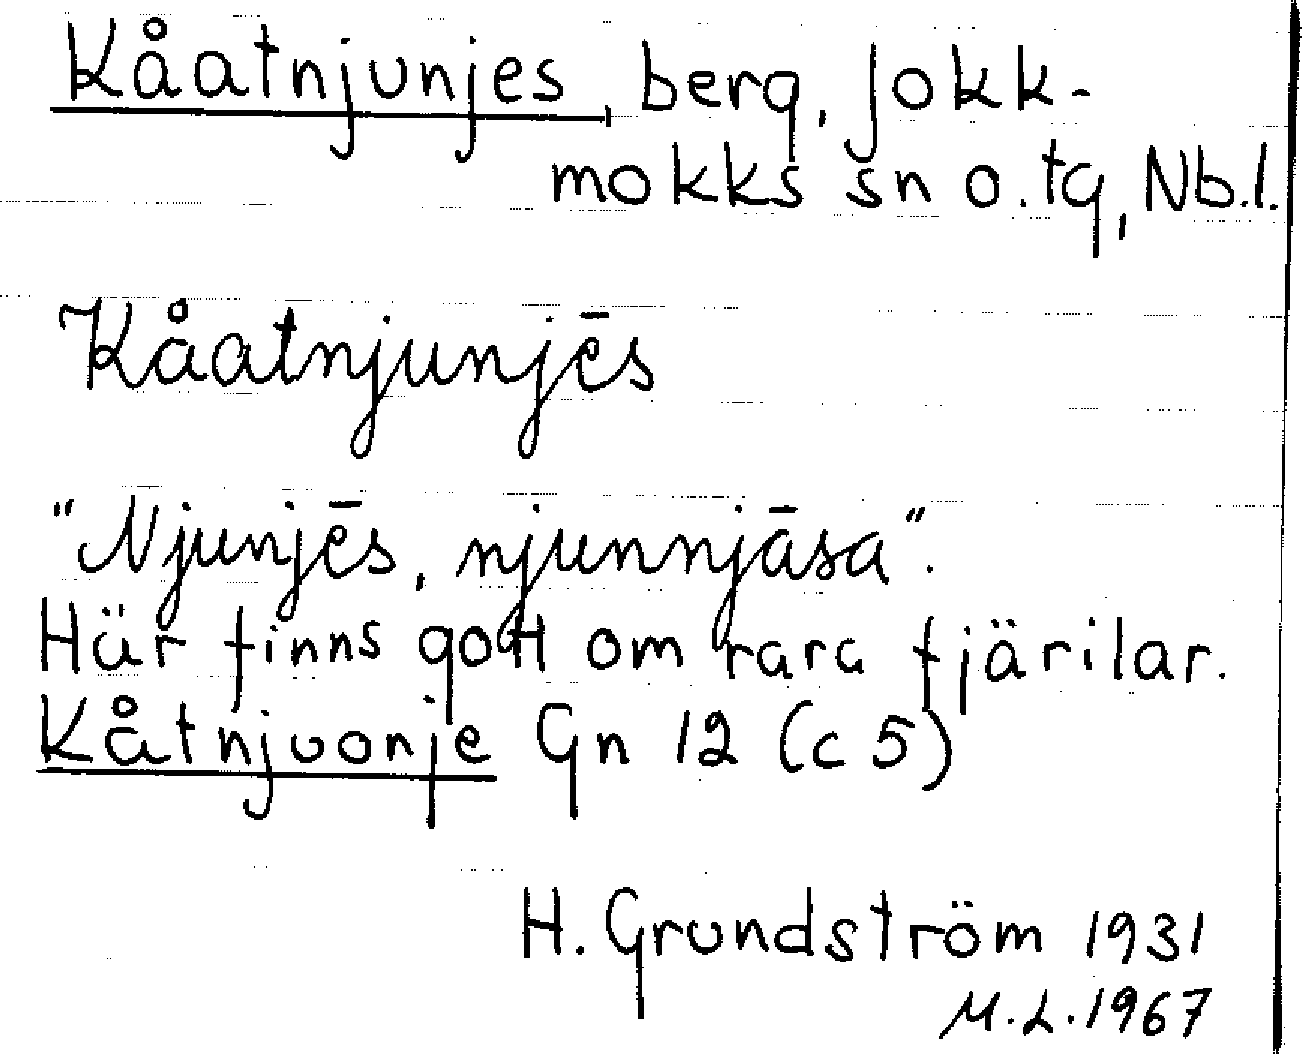 Kåatnjunjes, berg, Jokk-
mokks sn o. tg, Nb.l.
Kåatnjunjēs
"Njunjēs, njunnjāsa".
Här finns gott om rara fjärilar.
Kåtnjuonje Gn 12 (c 5)
H. Grundström 1931
M.L. 1967